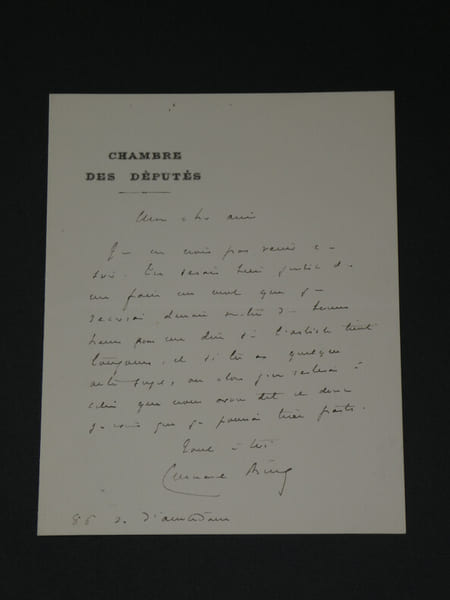 CHAMBRE
DES DÉPUTÉS
Mon cher ami
Je ne crois pas venir ce
soir. Tu serais bien gentil de
me faire un mot que je
recevrai demain matin de bonne
heure pour me dire si l'article tient
toujours, et si tu as quelque
autre sujet, ou alors je
celui que nous avons dit et dont
je crois que je pourrai tirer parti.
Tout à toi
86 r. d'Amsterdam